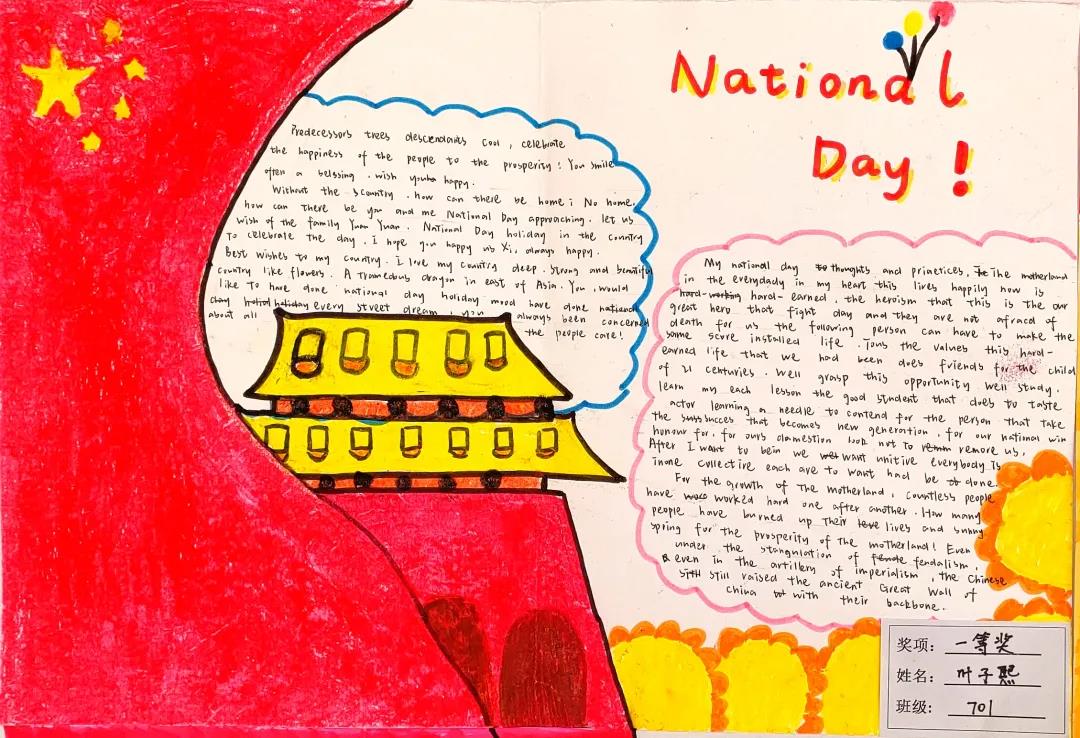 National
Day!
Predecessors trees descendants cool, celebrate
the happiness of the people to the prosperity! You smile
often a belssing. wish you happy.
Without the country. how can there be home; No home,
how can there be you and me National Day approaching. let us
wish of the family Yuan Yuan. National Day holiday in the country
To celebrate the day. I hope you happy us Xi, always happy.
Best wishes to my country. I love my country deep. strong and beautiful
country like flowers. A tramedous dragon in east of Asia. You, would
like To have done national day holiday mood have done national
day holiday every street dream, you always been concerned
about all the people care!
My national day thoughts and prinetices, The motherland
in the everydady in my heart this lives happily now is
hard-working hard-earned, the heroism that this is the our
great hero that fight day and they are not afracd of
death for us the following person can have to make the
some score installed life. Tous the values this hard-
earned life that we had been does friends for the child
of 21 centuries. Well grasp this opportunity well study.
learn my each lesson the good student that does to taste
actor learning a needle to contend for the person that take
the succes that becomes new generation, for our national win
honour for, for ours domestion look not to remore us,
After I want to bein we want unitive everybody is
inone collective each are to want had be done.
For the growth of The motherland, countless people
have worked hard one after another. How many
people have burned up Their lives and sunny
spring for the prosperity of The motherland! Even
under the stangulation of fendalism,
even in the artillery of imperialism, the Chinese
still raised the ancient Great Wall of
China with their backbone.
奖项: 一等奖
姓名: 叶子熙
班级: 701